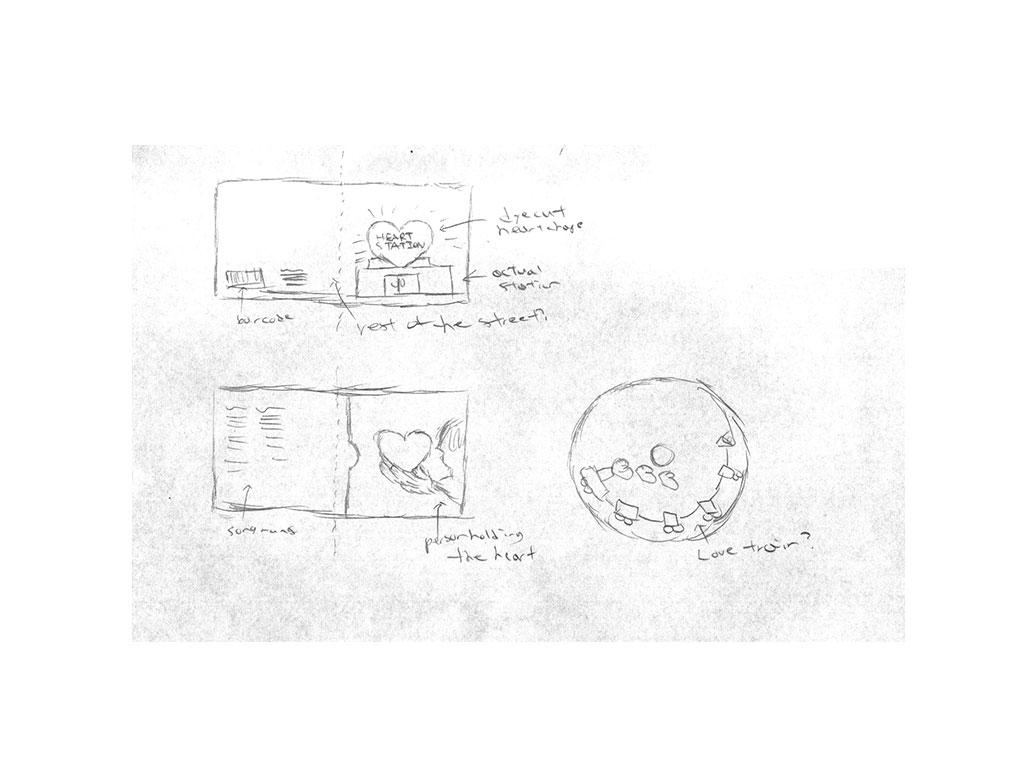 HEART
STATION
dyecut
heart shape
actual
station
barcode
rest of the street?
song names
person holding
the heart
Love train?